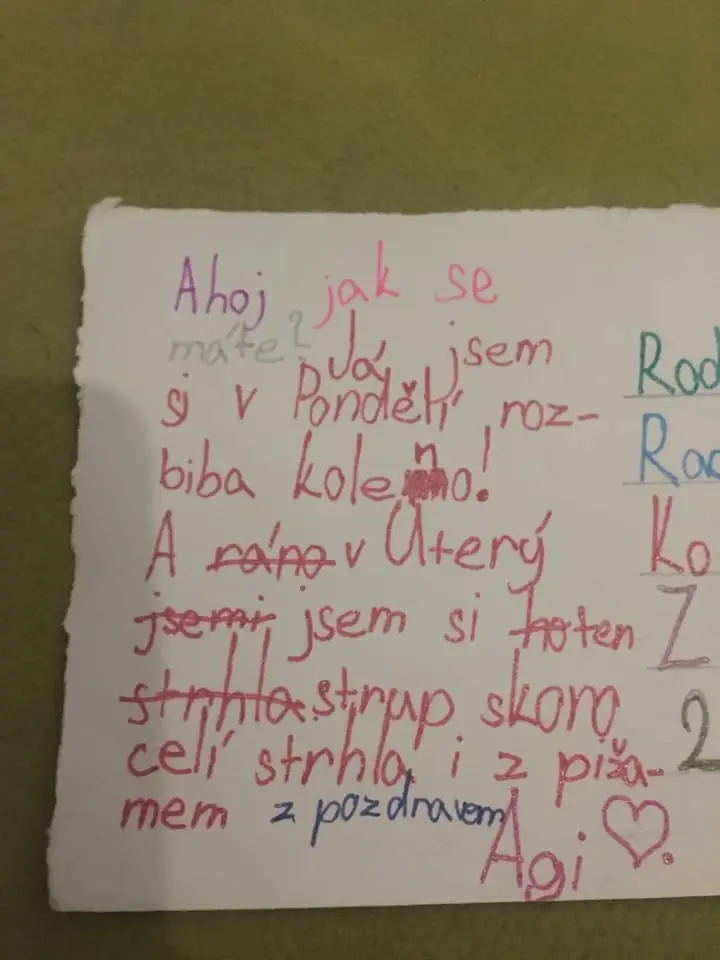 Ahoj jak se
máte? Já jsem
si v Ponděĺí roz-
biba koleno!
A ráno v Úterý
jsemi jsem si ho ten
strhla strup skoro
celí strhla i z piža-
mem z pozdravem
Agi
Rod
Rod
Ko
Z
2